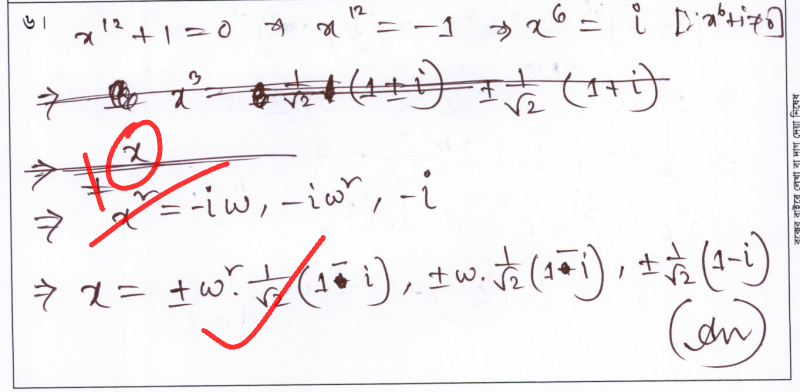 ৬। x¹² + 1 = 0 ⇒ x¹² = -1 ⇒ x⁶ = i [∵ x⁶+i≠0]
⇒ x³ = 1/√2 (1 ± i) ± 1/√2 (1 + i)
⇒ x
⇒ x² = -iω, -iω², -i
⇒ x = ±ω². 1/√2 (1 - i), ±ω. 1/√2 (1 - i), ± 1/√2 (1 - i)
(Ans)
10
বক্সের বাইরে লেখা বা দাগ দেয়া নিষেধ